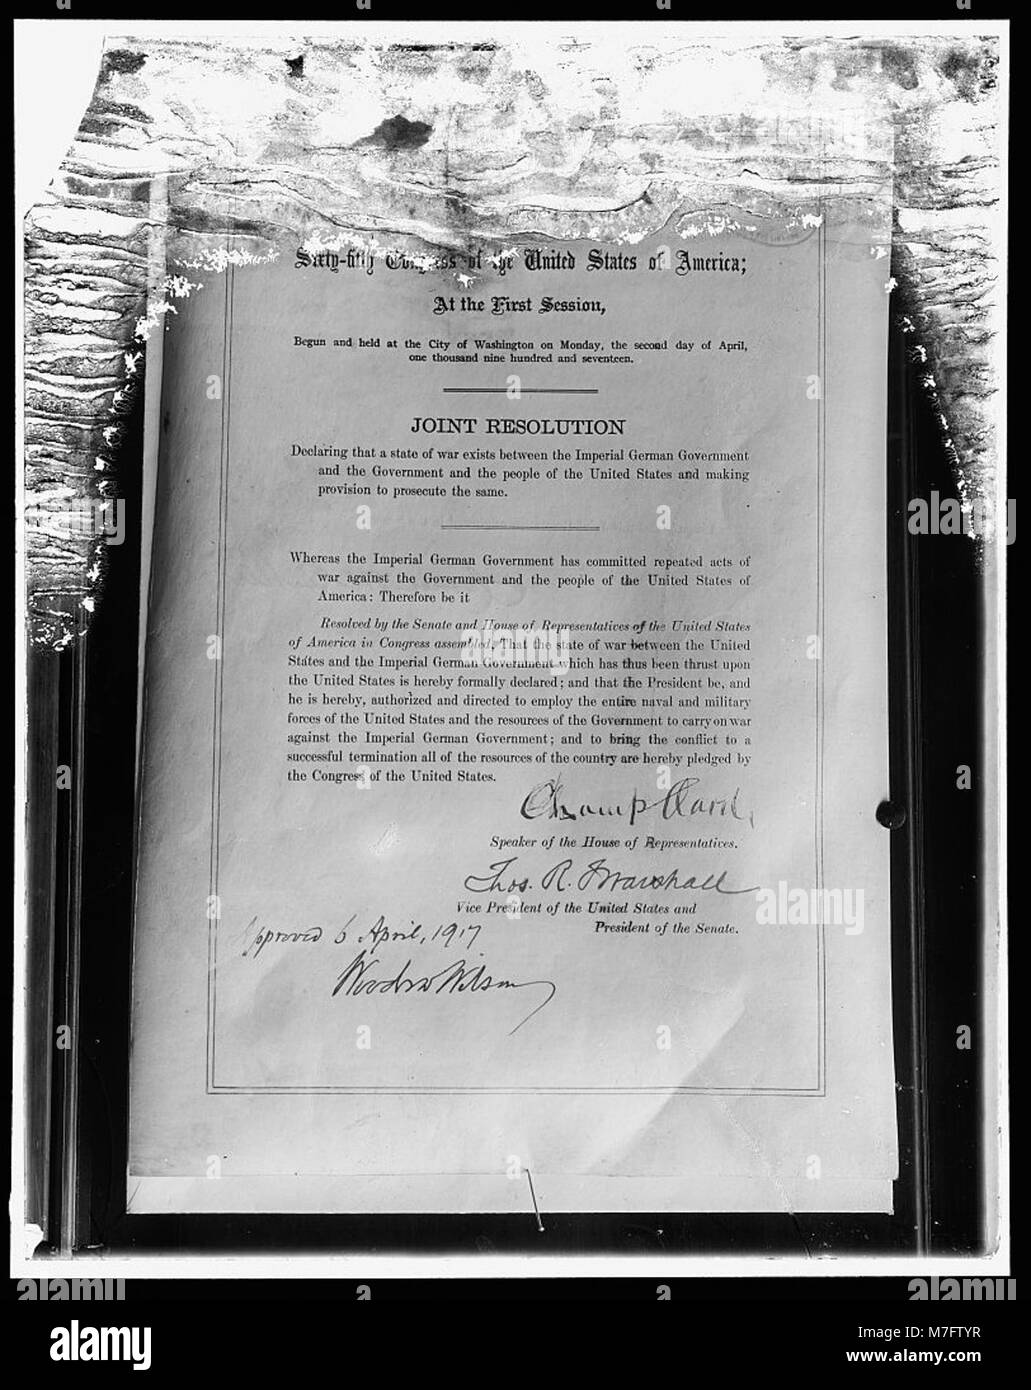 Sixty-fifth Congress of the United States of America;
At the First Session,
Begun and held at the City of Washington on Monday, the second day of April,
one thousand nine hundred and seventeen.
JOINT RESOLUTION
Declaring that a state of war exists between the Imperial German Government
and the Government and the people of the United States and making
provision to prosecute the same.
Whereas the Imperial German Government has committed repeated acts of
war against the Government and the people of the United States of
America: Therefore be it
Resolved by the Senate and House of Representatives of the United States
of America in Congress assembled, That the state of war between the United
States and the Imperial German Government which has thus been thrust upon
the United States is hereby formally declared; and that the President be, and
he is hereby, authorized and directed to employ the entire naval and military
forces of the United States and the resources of the Government to carry on war
against the Imperial German Government; and to bring the conflict to a
successful termination all of the resources of the country are hereby pledged by
the Congress of the United States.
Champ Clark
Speaker of the House of Representatives.
Thos. R. Marshall
Vice President of the United States and
President of the Senate.
Approved 6 April, 1917
Woodrow Wilson
alamy
alamy
alamy
alamy
alamy
Image ID: M7FTYR
www.alamy.com